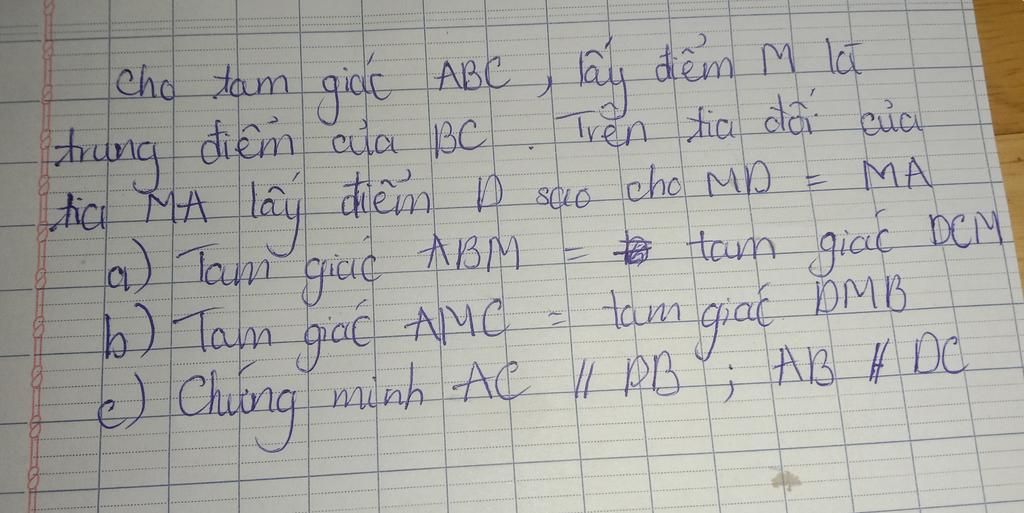 Cho tam giác ABC, lấy điểm M là
trung điểm của BC. Trên tia đối của
tia MA lấy điểm D sao cho MD = MA
a) Tam giác ABM = tam giác DCM
b) Tam giác AMC = tam giác DMB
c) Chứng minh AC // DB ; AB // DC